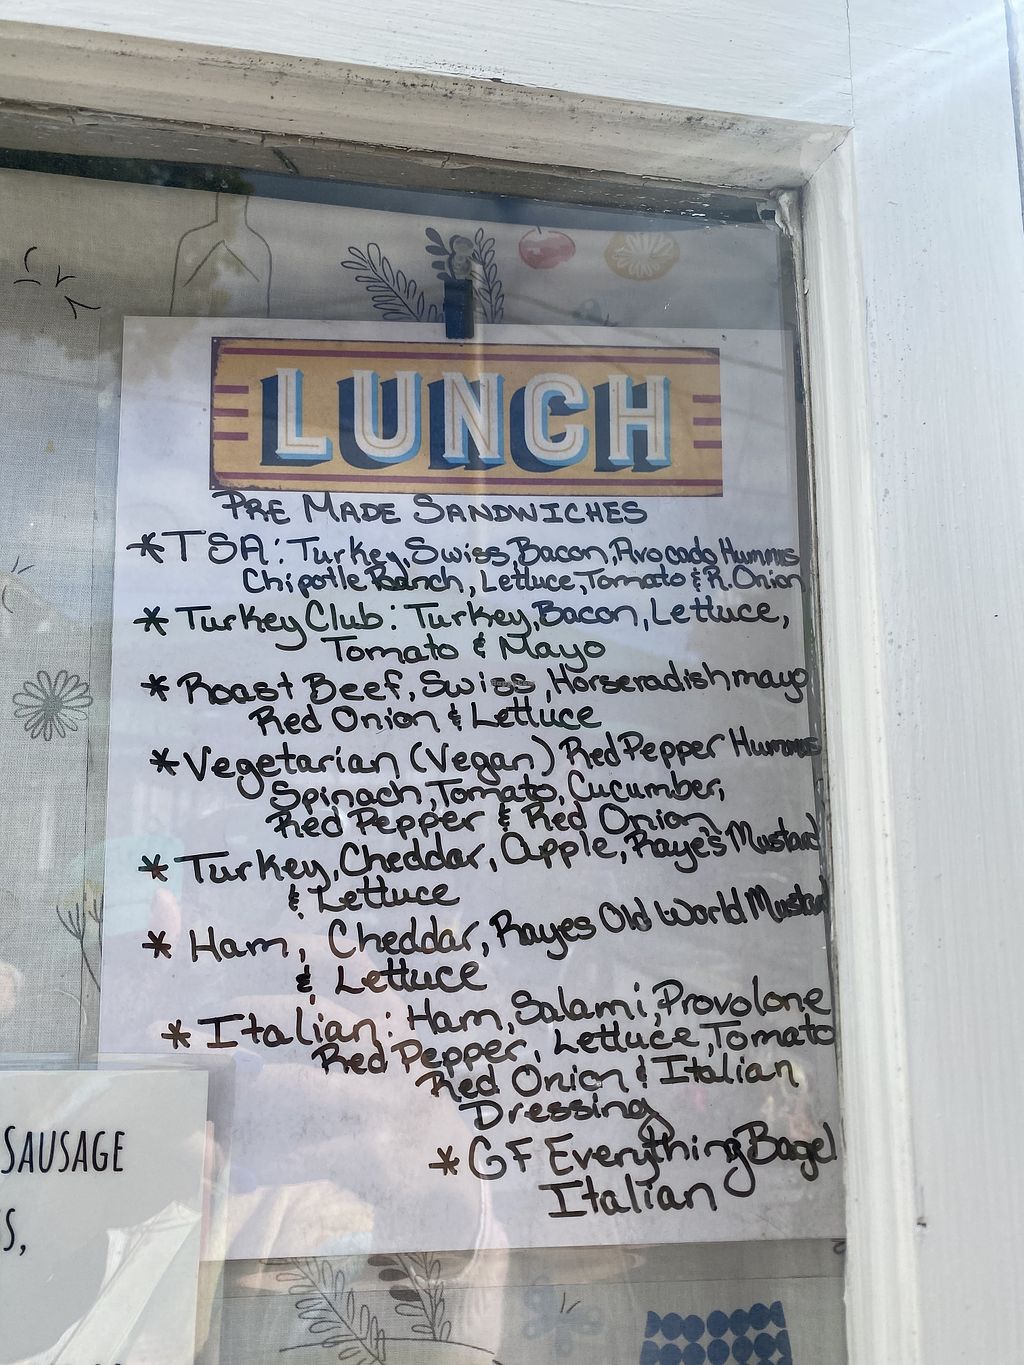 LUNCH
PRE MADE SANDWICHES
* TSA: Turkey, Swiss, Bacon, Avocado Hummus
Chipotle Ranch, Lettuce, Tomato & R. Onion
* Turkey Club: Turkey, Bacon, Lettuce,
Tomato & Mayo
* Roast Beef, Swiss, Horseradish mayo
Red Onion & Lettuce
* Vegetarian (Vegan) Red Pepper Hummus
Spinach, Tomato, Cucumber,
Red Pepper & Red Onion
* Turkey, Cheddar, Apple, Raye's Mustard
& Lettuce
* Ham, Cheddar, Rayes Old World Mustard
& Lettuce
* Italian: Ham, Salami, Provolone
Red Pepper, Lettuce, Tomato
Red Onion & Italian
Dressing
* GF Everything Bagel
Italian
SAUSAGE
S,